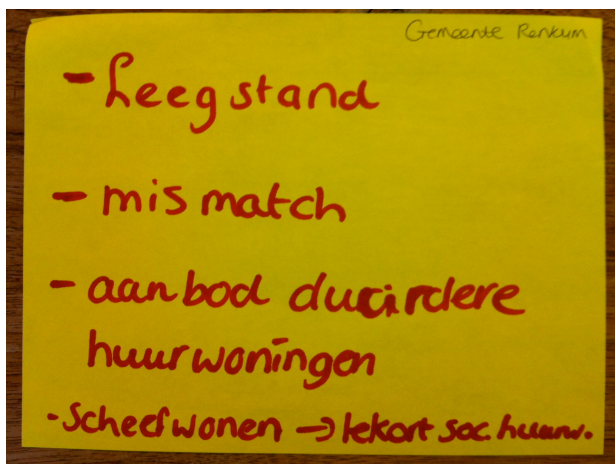 Gemeente Renkum
- Leegstand
- mismatch
- aanbod duurdere
huurwoningen
- Scheefwonen → tekort soc. huurw.